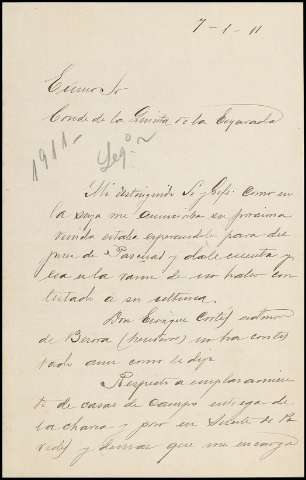 7-1-11
Excmo Sr
Conde de la Quinta de la Enjarada
1911-
Mi distinguido Sr y Jefe: Como en
la suya me anunciaba su próxima
venida estaba esperandole para dis
de Pascuas y darle cuenta y
esa es la de no haber con
testado a su ultima.
Don Enrique Cortés notario
de no ha contes
tado aun como le dije
Respecto a emplazamien
to de casas de campo entrega de
la charca y pozo en de
y demas que me encarga